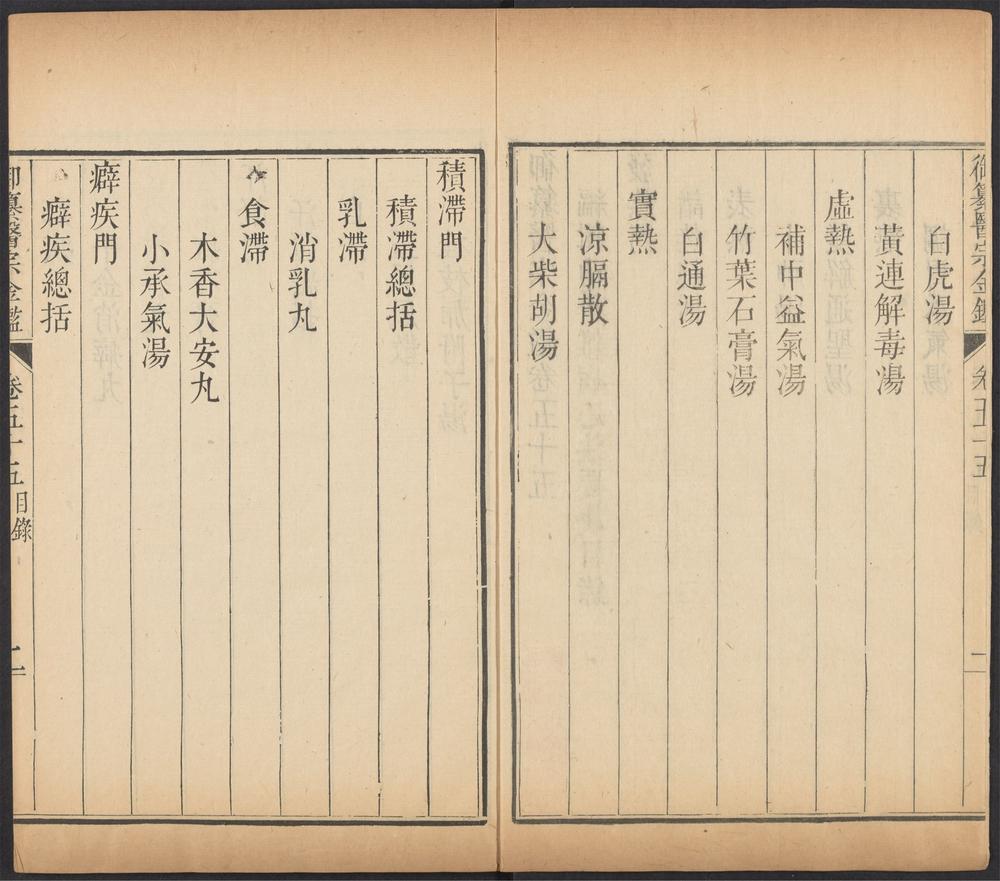 御纂醫宗金鑑 卷五十五 一
白虎湯
黃連解毒湯
虛熱
補中益氣湯
竹葉石膏湯
白通湯
實熱
涼膈散
大柴胡湯
積滯門
積滯總括
乳滯
消乳丸
食滯
木香大安丸
小承氣湯
癖疾門
癖疾總括
御纂醫宗金鑑 卷五十五 目錄 二